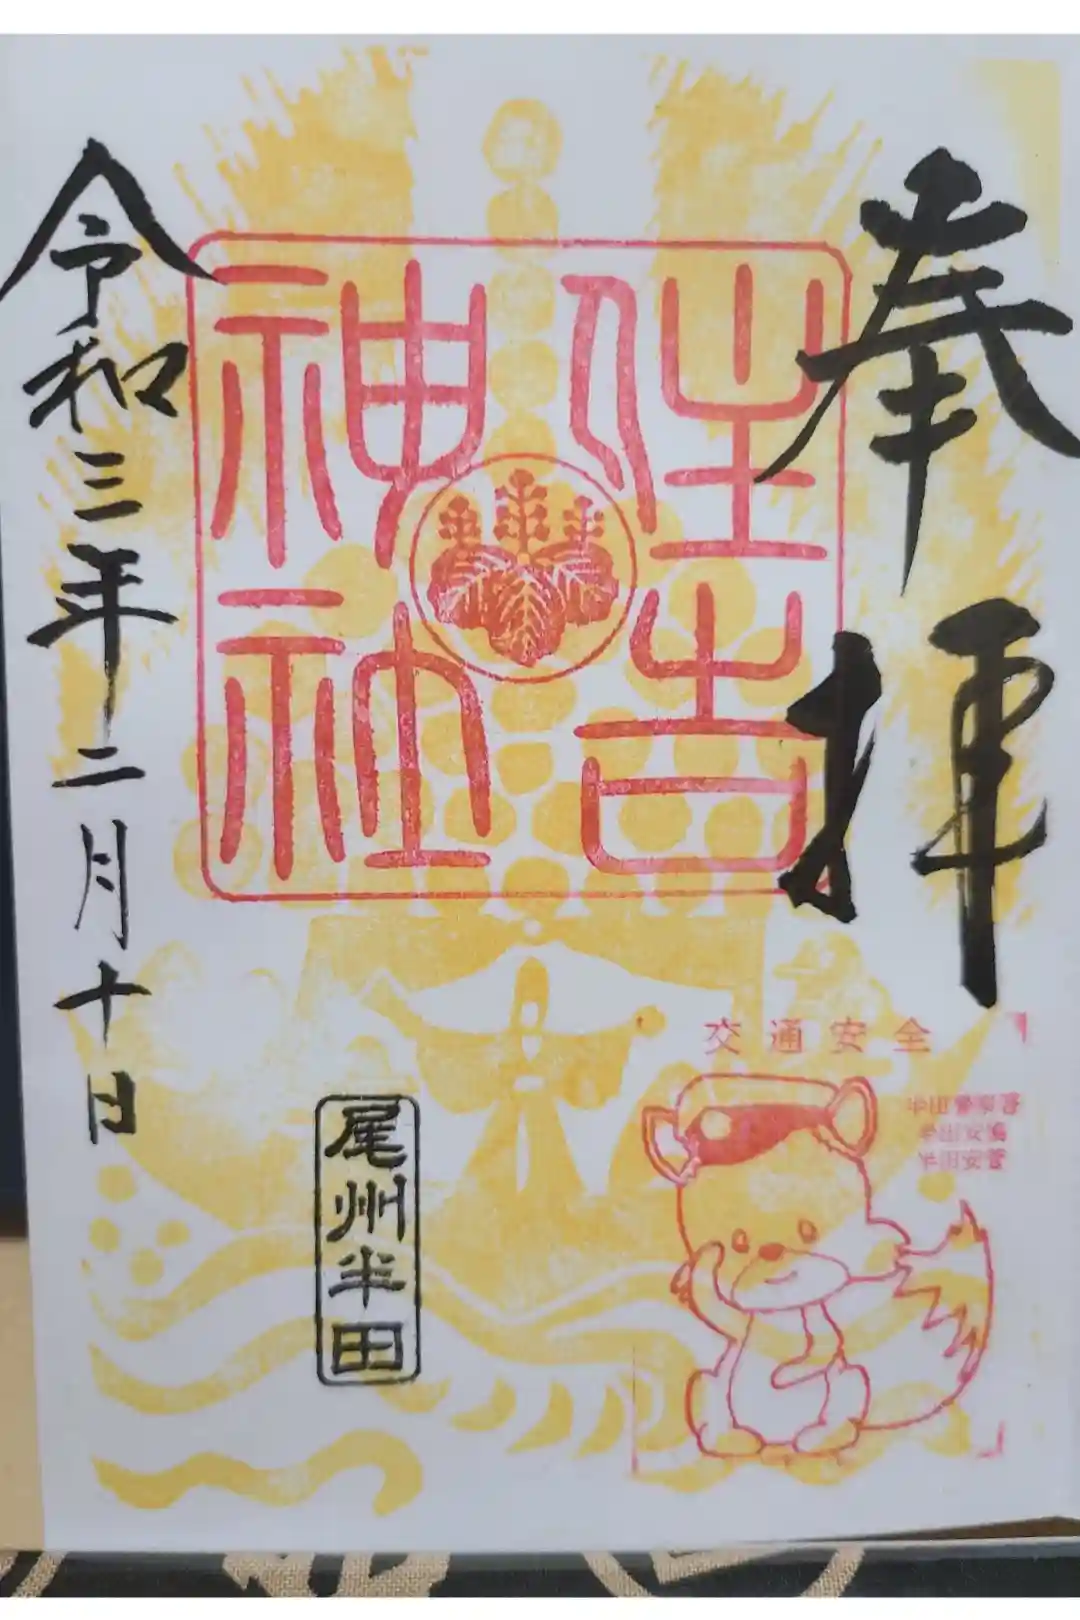 奉拝
住吉
神社
令和三年二月十日
交通安全
半田警察署
半田安協
半田安管
尾州半田